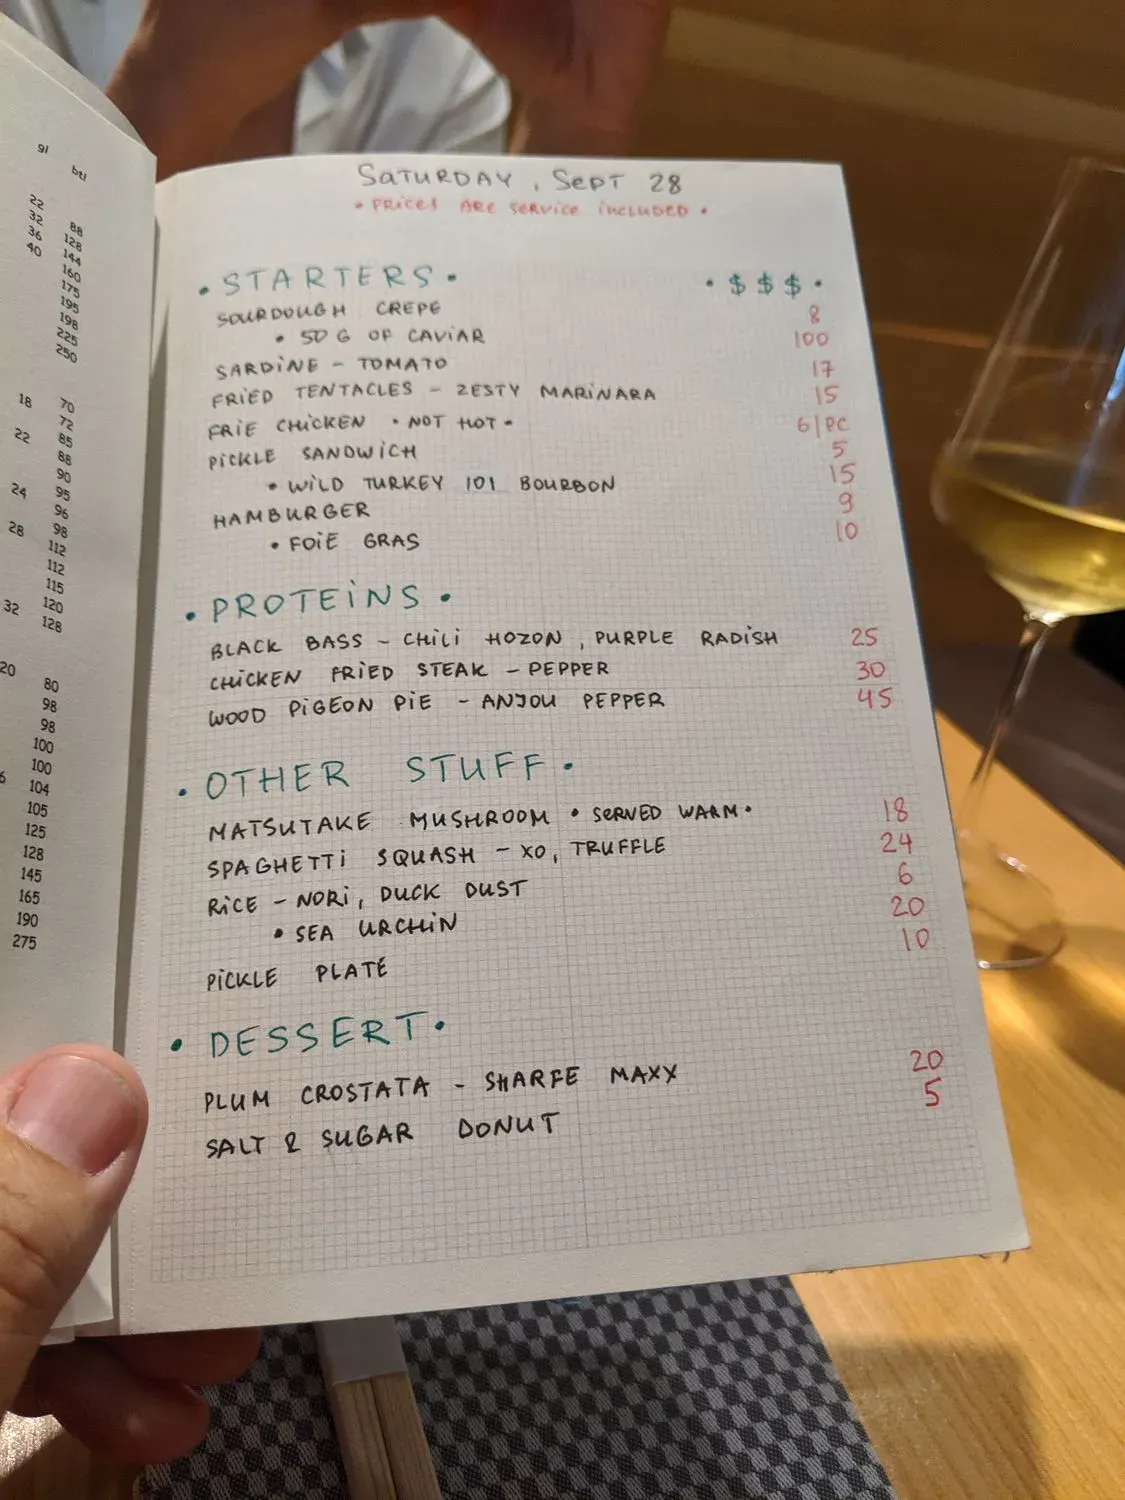 gl btl
22 88
32 128
36 144
40 160
175
195
198
225
250
18 70
72
22 85
88
90
24 95
96
28 98
112
112
115
32 120
128
20 80
98
98
100
100
6 104
105
125
128
145
165
190
275
SATURDAY, SEPT 28
• PRICES ARE SERVICE INCLUDED •
• STARTERS • • $ $ $ •
SOURDOUGH CREPE 8
• 50 G OF CAVIAR 100
SARDINE - TOMATO 17
FRIED TENTACLES - ZESTY MARINARA 15
FRIE CHICKEN • NOT HOT • 6|PC
PICKLE SANDWICH 5
• WILD TURKEY 101 BOURBON 15
HAMBURGER 9
• FOIE GRAS 10
• PROTEINS •
BLACK BASS - CHILI HOZON, PURPLE RADISH 25
CHICKEN FRIED STEAK - PEPPER 30
WOOD PIGEON PIE - ANJOU PEPPER 45
• OTHER STUFF •
MATSUTAKE MUSHROOM • SERVED WARM • 18
SPAGHETTI SQUASH - XO, TRUFFLE 24
RICE - NORI, DUCK DUST 6
• SEA URCHIN 20
PICKLE PLATE 10
• DESSERT •
PLUM CROSTATA - SHARFE MAXX 20
SALT & SUGAR DONUT 5